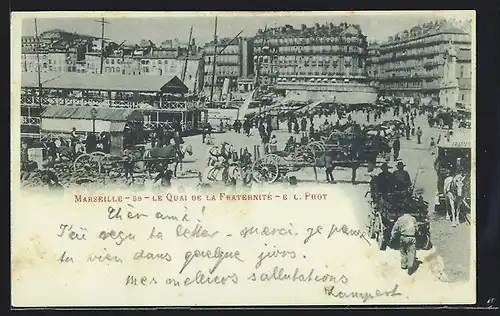 MARSEILLE - 39 - LE QUAI DE LA FRATERNITÉ - E. L. PHOT
Chèr ami!
J'ai reçu ta letter - merci. je pans
tu vien dans quelque jors.
mes melieurs salutations